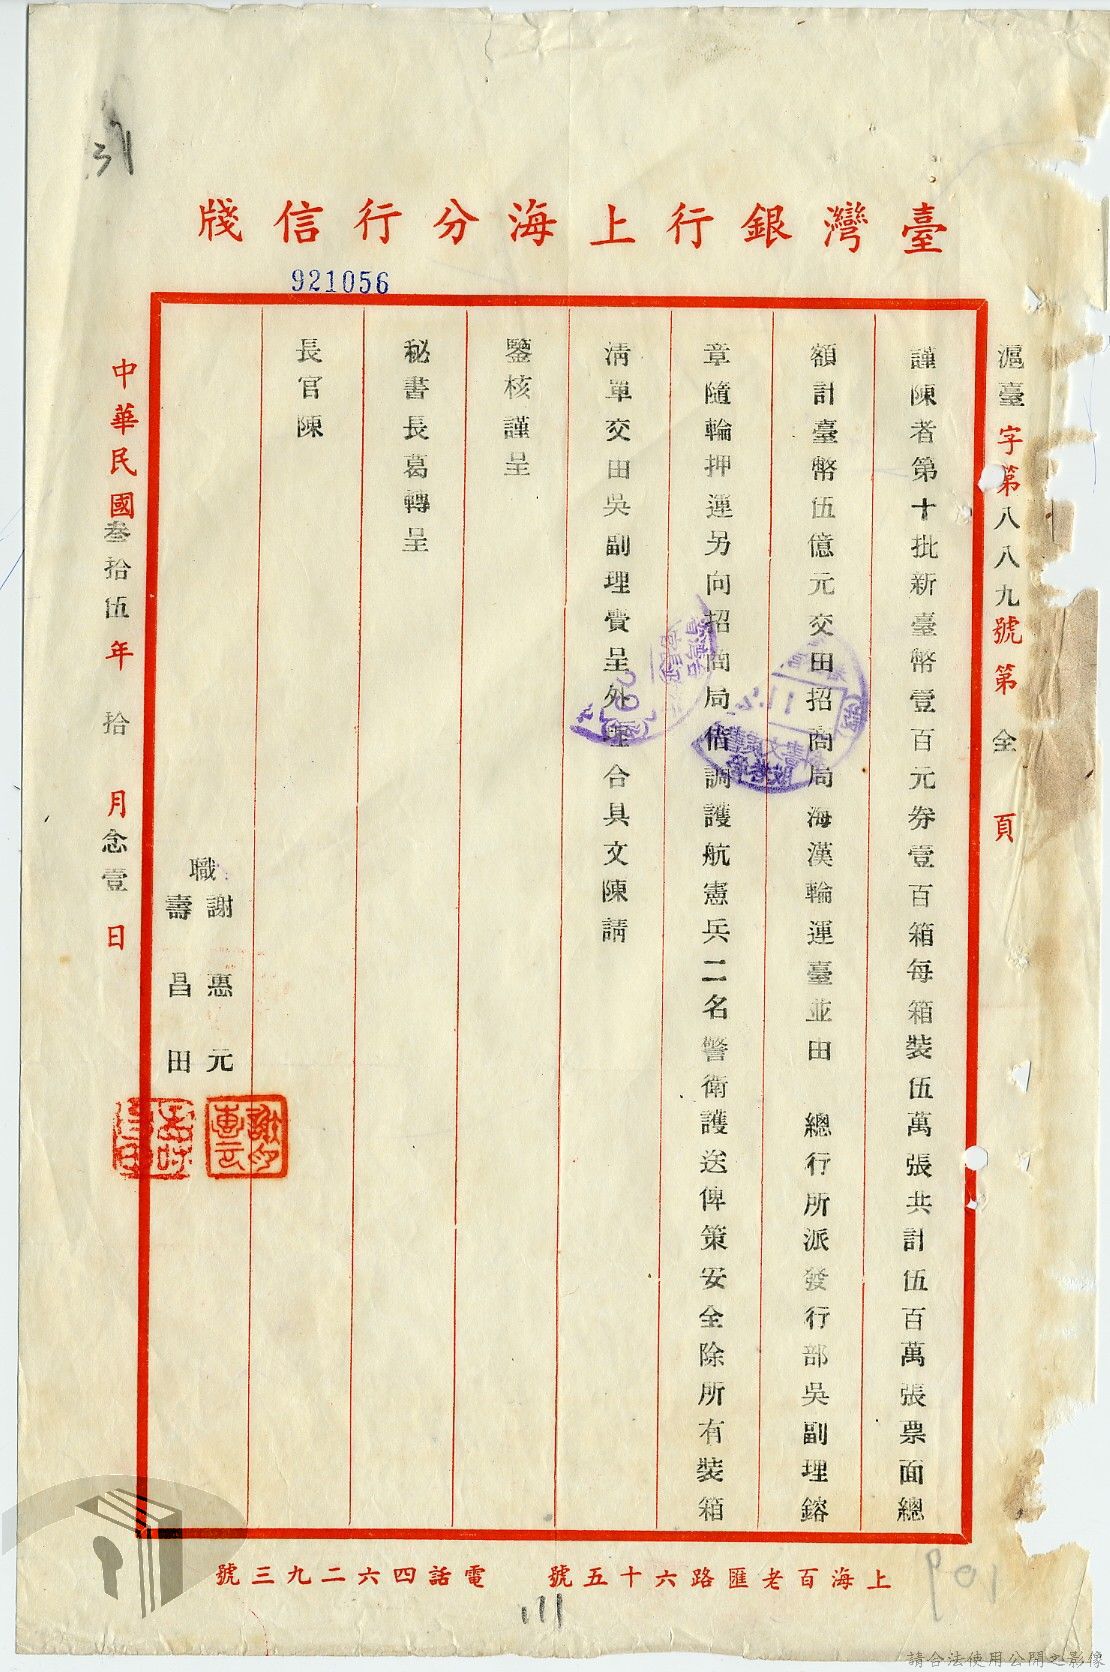 臺灣銀行上海分行信牋
921056
滬臺字第八八九號第全頁
謹陳者第十批新臺幣壹百元券壹百箱每箱裝伍萬張共計伍百萬張票面總
額計臺幣伍億元交由招商局海漢輪運臺並由 總行所派發行部吳副理鎔
章隨輪押運另向招商局借調護航憲兵二名警衛護送俾策安全除所有裝箱
清單交由吳副理賫呈外理合具文陳請
鑒核謹呈
秘書長葛轉呈
長官陳
職謝惠元
壽昌田
中華民國叁拾伍年拾月念壹日
上海百老匯路六十五號 電話四六二九三號
請合法使用公開之影像